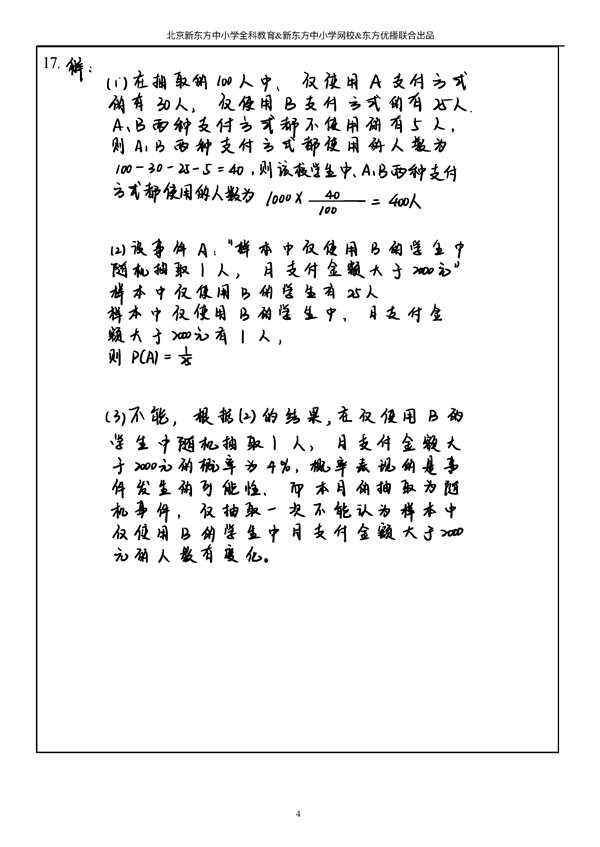 北京新东方中小学全科教育&新东方中小学网校&东方优播联合出品
17. 解：
(1)在抽取的100人中、仅使用A支付方式
的有30人，仅使用B支付方式的有25人.
A、B两种支付方式都不使用的有5人，
则A、B两种支付方式都使用的人数为
100-30-25-5=40，则该校学生中、A、B两种支付
方式都使用的人数为 1000×40/100=400人
(2)设事件A：“样本中仅使用B的学生中
随机抽取1人，月支付金额大于2000元”
样本中仅使用B的学生有25人
样本中仅使用B的学生中、月支付金
额大于2000元有1人，
则P(A)=1/25
(3)不能，根据(2)的结果，在仅使用B的
学生中随机抽取1人，月支付金额大
于2000元的概率为4%，概率表现的是事
件发生的可能性、而本月的抽取为随
机事件，仅抽取一次不能认为样本中
仅使用B的学生中月支付金额大于2000
元的人数有变化。
4